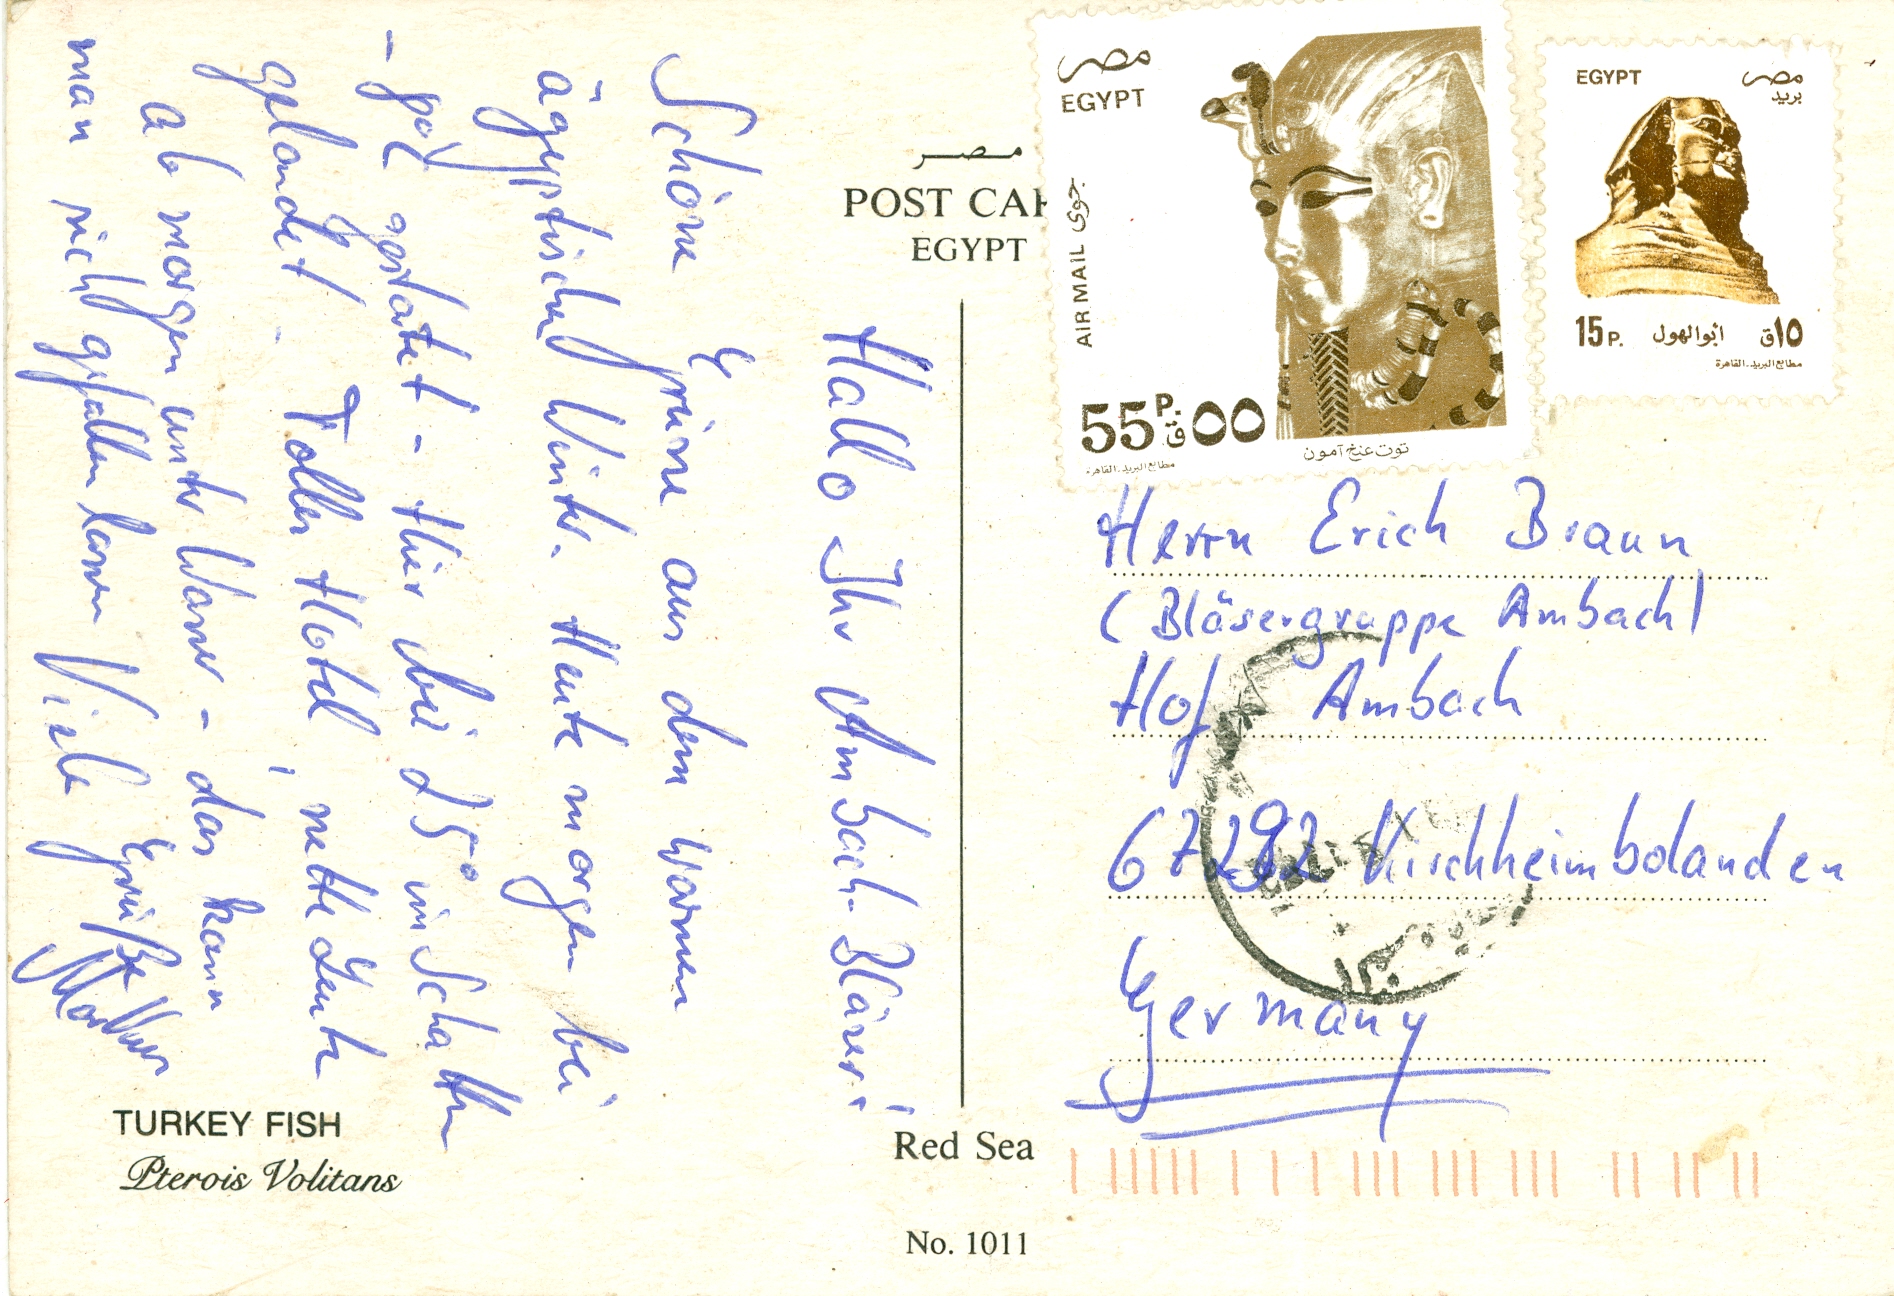 Hallo Ihr Ambach-Bläser!
Schöne Grüsse aus dem warmen
ägyptischen Winter. Heute morgen bei
gestartet - Hier bei 25° im Schatten
gelandet. Tolles Hotel, nette Leute
ab morgen unter Wasser - das kann
man sich gefallen lassen Viele Grüße
TURKEY FISH
Pterois Volitans
مصر
POST CAR
EGYPT
Red Sea
No. 1011
مصر
EGYPT
AIR MAIL جوى
55 P. ق ٥٥
توت عنخ آمون
مطابع البريد - القاهرة
EGYPT
مصر
بريد
15 P. أبو الهول ق ١٥
مطابع البريد - القاهرة
Herrn Erich Braun
(Bläsergruppe Ambach)
Hof Ambach
67292 Kirchheimbolanden
Germany